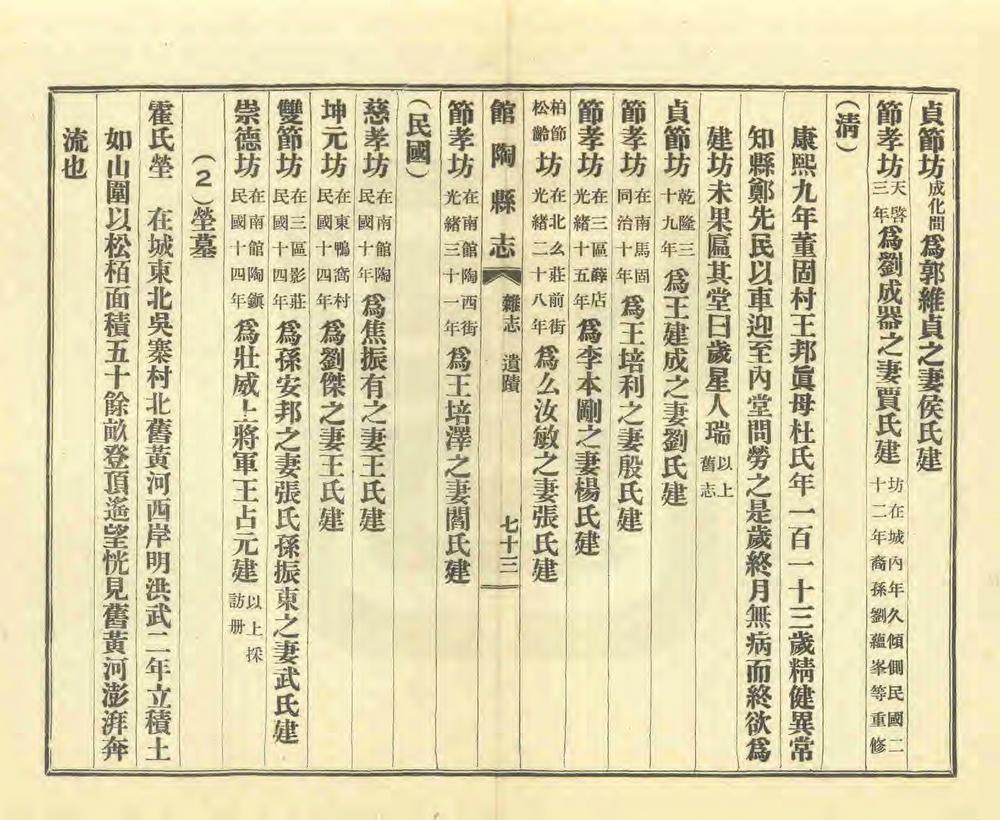 貞節坊成化間爲郭維貞之妻侯氏建
節孝坊天啓三年爲劉成器之妻賈氏建坊在城內年久傾側民國二十二年裔孫劉蘊峯等重修
（淸）
康熙九年董固村王邦眞母杜氏年一百一十三歲精健異常
知縣鄭先民以車迎至內堂問勞之是歲終月無病而終欲爲
建坊未果匾其堂曰歲星人瑞以上舊志
貞節坊乾隆三十九年爲王建成之妻劉氏建
節孝坊在南馬固同治十年爲王培利之妻殷氏建
節孝坊在三區薛店光緒十五年爲李本剛之妻楊氏建
柏節松齡坊在北么莊前街光緒二十八年爲么汝敏之妻張氏建
館陶縣志 雜志 遺蹟 七十三
節孝坊在南館陶西街光緒三十一年爲王培澤之妻閻氏建
（民國）
慈孝坊在南館陶民國十年爲焦振有之妻王氏建
坤元坊在東鴨窩村民國十四年爲劉傑之妻王氏建
雙節坊在三區影莊民國十四年爲孫安邦之妻張氏孫振東之妻武氏建
崇德坊在南館陶鎭民國十四年爲壯威上將軍王占元建以上採訪册
（2）塋墓
霍氏塋 在城東北吳寨村北舊黃河西岸明洪武二年立積土
如山圍以松栢面積五十餘畝登頂遙望恍見舊黃河澎湃奔
流也